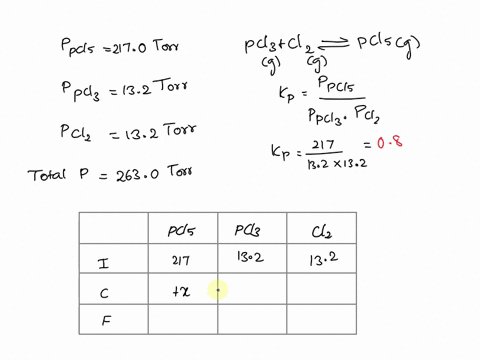 P PCl5 = 217.0 Torr
P PCl3 = 13.2 Torr
P Cl2 = 13.2 Torr
Total P = 263.0 Torr
PCl3 + Cl2 ⇌ PCl5 (g)
(g) (g)
Kp = P PCl5 / P PCl3 . P Cl2
Kp = 217 / 13.2 × 13.2 = 0.8
PCl5 PCl3 Cl2
I 217 13.2 13.2
C +x
F